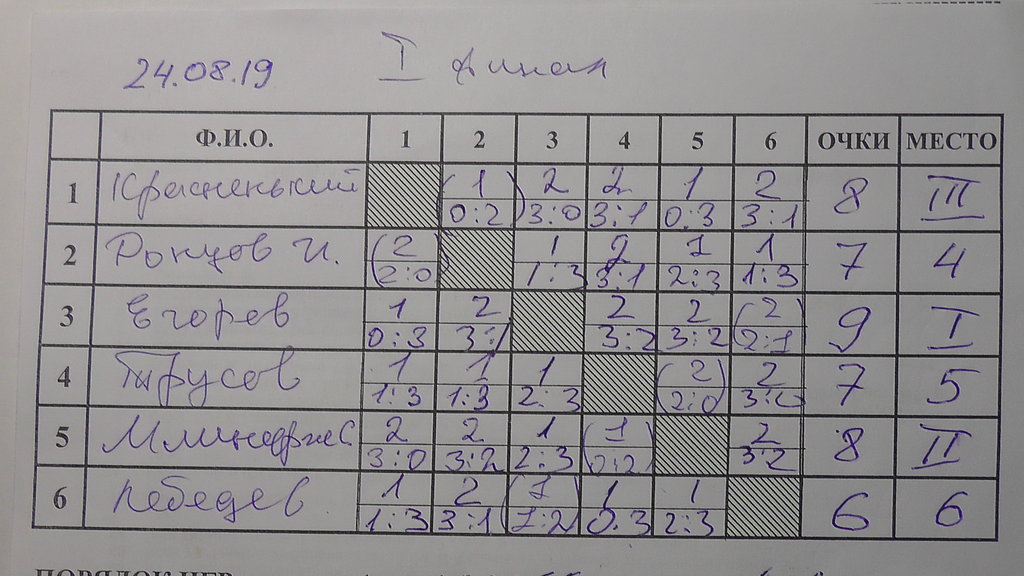 24.08.19 I финал
Ф.И.О. 1 2 3 4 5 6 ОЧКИ МЕСТО
1 Красненький (1) 2 2 1 2 8 III
0:2 3:0 3:1 0:3 3:1
2 Ронцов И. (2) 1 2 1 1 7 4
2:0 1:3 3:1 2:3 1:3
3 Егоров 1 2 2 2 (2) 9 I
0:3 3:1 3:2 3:2 2:1
4 1 1 1 (2) 2 7 5
1:3 1:3 2:3 2:0 3:0
5 2 2 1 (1) 2 8 II
3:0 3:2 2:3 0:2 3:2
6 Лебедев 1 2 (1) 1 1 6 6
1:3 3:1 1:2 0:3 2:3